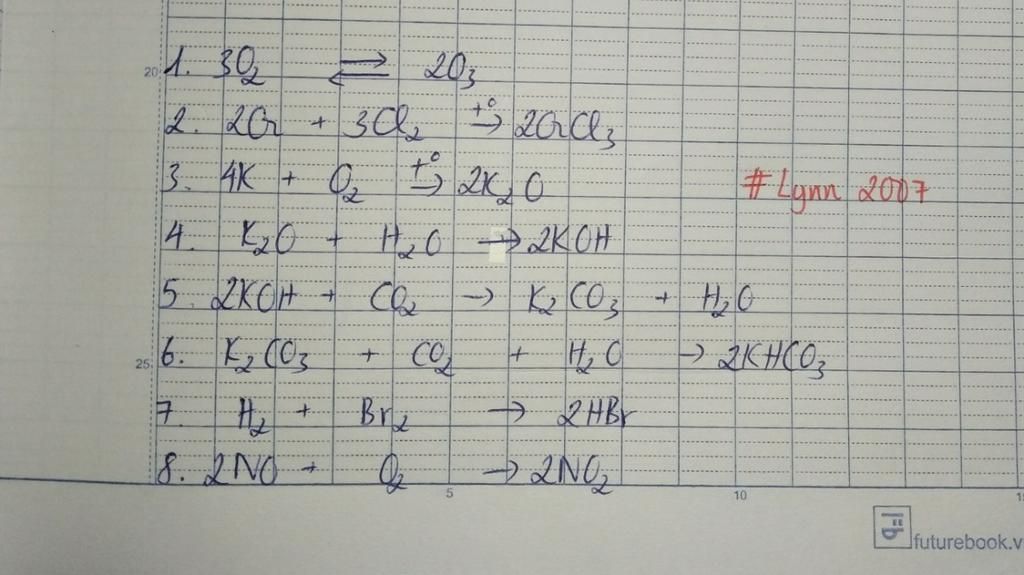 20
1. 3O₂ ⇌ 2O₃
2. 2Cr + 3Cl₂ t°→ 2CrCl₃
3. 4K + O₂ t°→ 2K₂O
# Lynn 2007
4. K₂O + H₂O → 2KOH
5. 2KOH + CO₂ → K₂CO₃ + H₂O
25
6. K₂CO₃ + CO₂ + H₂O → 2KHCO₃
7. H₂ + Br₂ → 2HBr
8. 2NO + O₂ → 2NO₂
5 10
futurebook.v